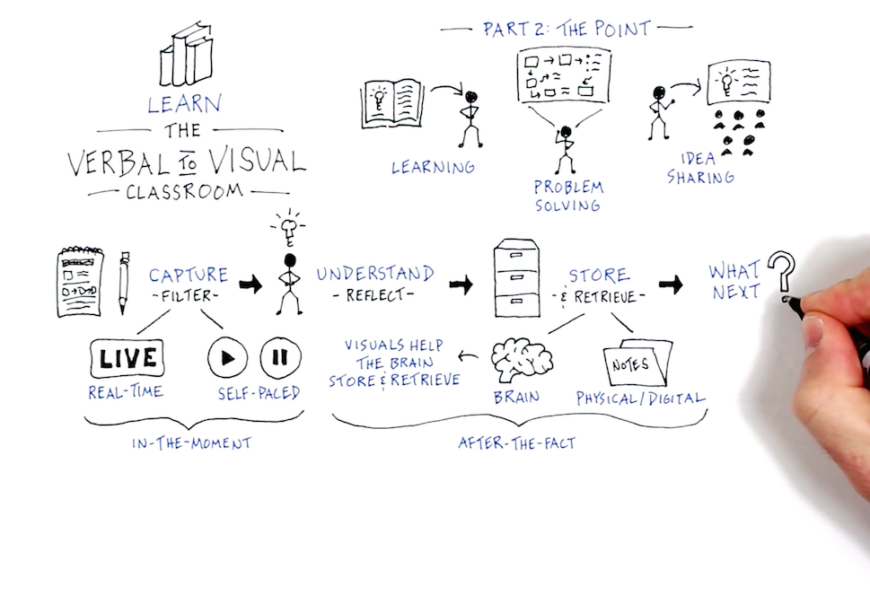 LEARN
THE
VERBAL TO VISUAL
CLASSROOM
PART 2: THE POINT
LEARNING
PROBLEM
SOLVING
IDEA
SHARING
CAPTURE
-FILTER-
UNDERSTAND
-REFLECT-
STORE
-& RETRIEVE-
WHAT
NEXT ?
LIVE
REAL-TIME
SELF-PACED
VISUALS HELP
THE BRAIN
STORE & RETRIEVE
BRAIN
NOTES
PHYSICAL/DIGITAL
IN-THE-MOMENT
AFTER-THE-FACT